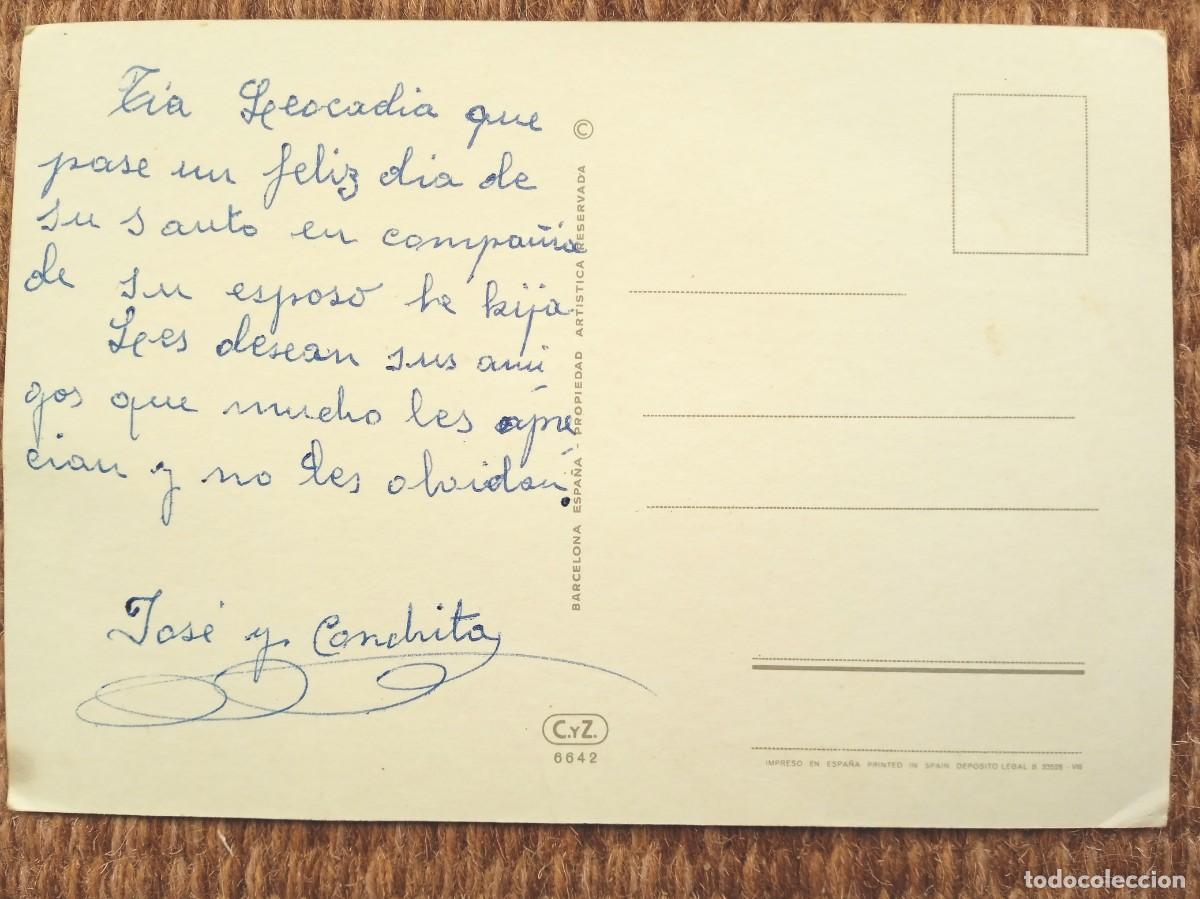 Tía Leocadia que
pase un feliz dia de
su santo en compañia
de su esposo he hija.
Les desean sus ami
gos que mucho les apre
cian y no les olvidan.
José y Conchita
BARCELONA ESPAÑA - PROPIEDAD ARTISTICA RESERVADA ©
C.Y Z.
6642
IMPRESO EN ESPAÑA PRINTED IN SPAIN DEPOSITO LEGAL B. 33528 - VIII
todocoleccion